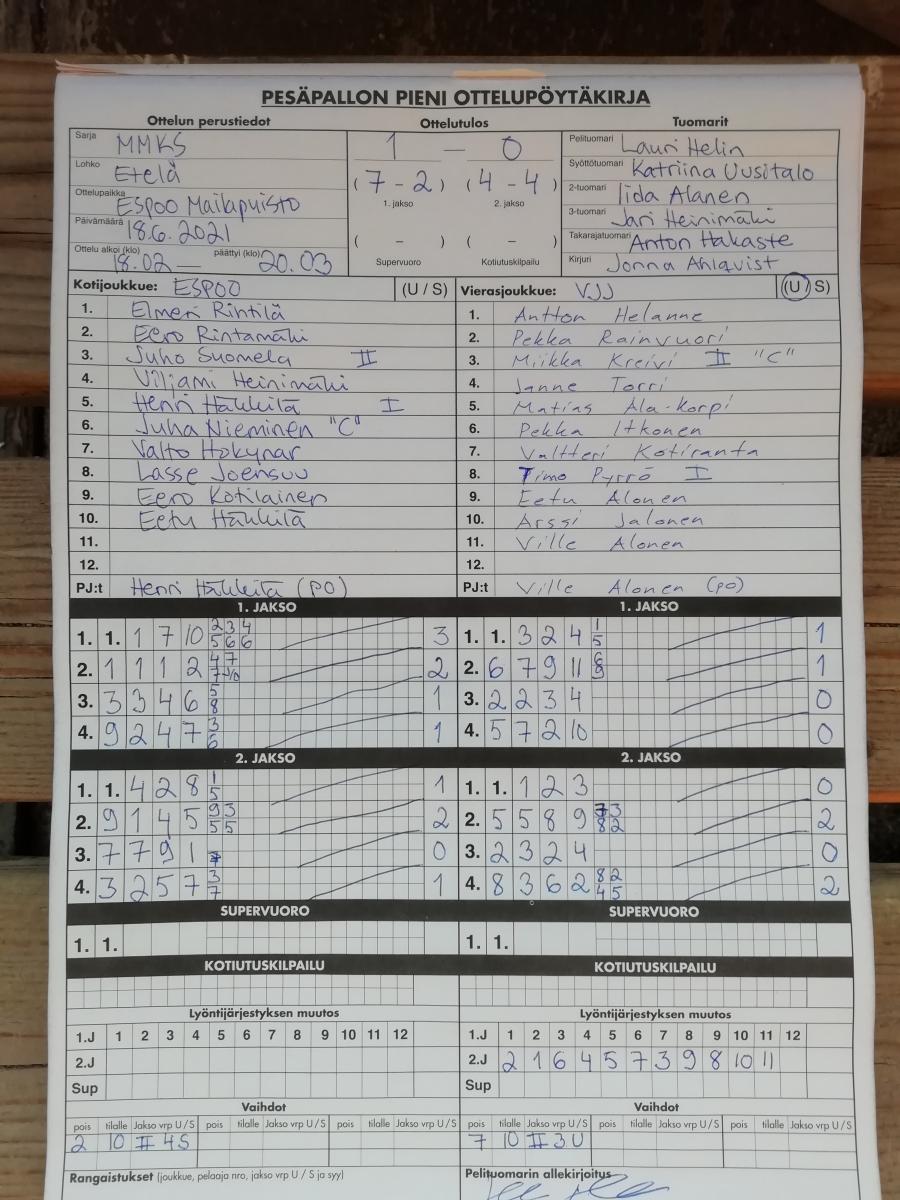 PESÄPALLON PIENI OTTELUPÖYTÄKIRJA
Ottelun perustiedot Ottelutulos Tuomarit
Sarja MMKS
Lohko Etelä
Ottelupaikka Espoo Mailapuisto
Päivämäärä 18.6.2021
Ottelu alkoi (klo) 18.02 — päättyi (klo) 20.03
1 — 0
( 7 - 2 ) ( 4 - 4 )
1. jakso 2. jakso
( – ) ( – )
Supervuoro Kotiutuskilpailu
Pelituomari Lauri Helin
Syöttötuomari Katriina Uusitalo
2-tuomari Iida Alanen
3-tuomari Jari Heinimäki
Takarajatuomari Anton Hakaste
Kirjuri Jonna Ahlqvist
Kotijoukkue: ESPOO (U / S)
1. Elmeri Rintilä
2. Eero Rintamäki
3. Juho Suomela II
4. Viljami Heinimäki
5. Henri Häkkilä I
6. Juha Nieminen "C"
7. Valto Hokynar
8. Lasse Joensuu
9. Eero Kotilainen
10. Eetu Häkkilä
11.
12.
PJ:t Henri Häkkilä (PO)
Vierasjoukkue: VJJ (U / S)
1. Antton Helanne
2. Pekka Rainvuori
3. Miikka Kreivi II "C"
4. Janne Torri
5. Matias Ala-Korpi
6. Pekka Itkonen
7. Valtteri Kotiranta
8. Timo Pyrrö I
9. Eetu Alonen
10. Arssi Jalonen
11. Ville Alonen
12.
PJ:t Ville Alonen (PO)
1. JAKSO
1. 1. 1 7 10 2 3 4 3
5 6 6
2. 1 1 1 2 4 7 2
7 10
3. 3 3 4 6 5 1
8
4. 9 2 4 7 3 1
6
2. JAKSO
1. 1. 4 2 8 1 1
5
2. 9 1 4 5 9 3 2
5 5
3. 7 7 9 1 0
4. 3 2 5 7 3 1
7
SUPERVUORO
1. 1.
KOTIUTUSKILPAILU
1. JAKSO
1. 1. 3 2 4 1 1
5
2. 6 7 9 11 6 1
9
3. 2 2 3 4 0
4. 5 7 2 10 0
2. JAKSO
1. 1. 1 2 3 0
2. 5 5 8 9 7 3 2
8 2
3. 2 3 2 4 0
4. 8 3 6 2 8 2 2
4 5
SUPERVUORO
1. 1.
KOTIUTUSKILPAILU
Lyöntijärjestyksen muutos
1.J 1 2 3 4 5 6 7 8 9 10 11 12
2.J
Sup
Vaihdot
pois tilalle Jakso vrp U / S pois tilalle Jakso vrp U / S pois tilalle Jakso vrp U / S
2 10 II 4S
Rangaistukset (joukkue, pelaaja nro, jakso vrp U / S ja syy)
Lyöntijärjestyksen muutos
1.J 1 2 3 4 5 6 7 8 9 10 11 12
2.J 2 1 6 4 5 7 3 9 8 10 11
Sup
Vaihdot
pois tilalle Jakso vrp U / S pois tilalle Jakso vrp U / S pois tilalle Jakso vrp U / S
7 10 II 3U
Pelituomarin allekirjoitus